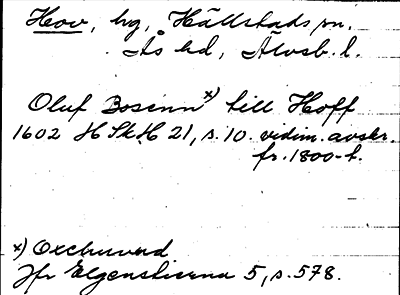 Hov, hg, Hällstads sn.
Ås hd, Älvsb. l.
Oluf Bosenn x) till Hoff
1602 HSkH 21, s. 10. vidim. avskr.
fr. 1800-t.
x) Oxehuvud
Jfr Elgenstierna 5, s. 578.